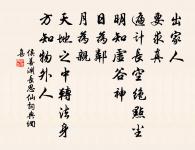 出家人
要求真
遍計長空絕點塵
明知虛谷神
日為鄰
月為親
天地之中轉法身
方知物外人
侯善淵長思仙詞典網
集